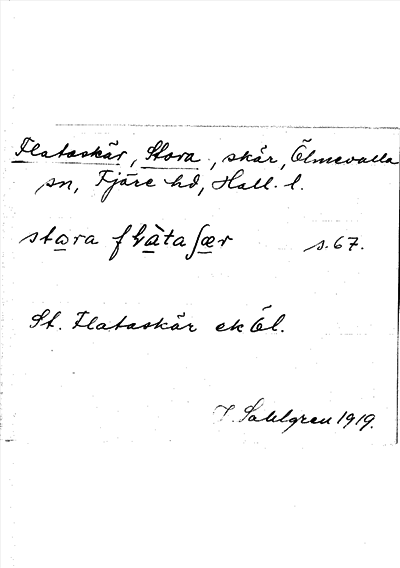 Flataskär, Stora, skär, Ölmevalla
sn, Fjäre hd, Hall. l.
stɑra flàtaʃær s. 67.
St. Flataskär ek Öl.
J. Sahlgren 1919.